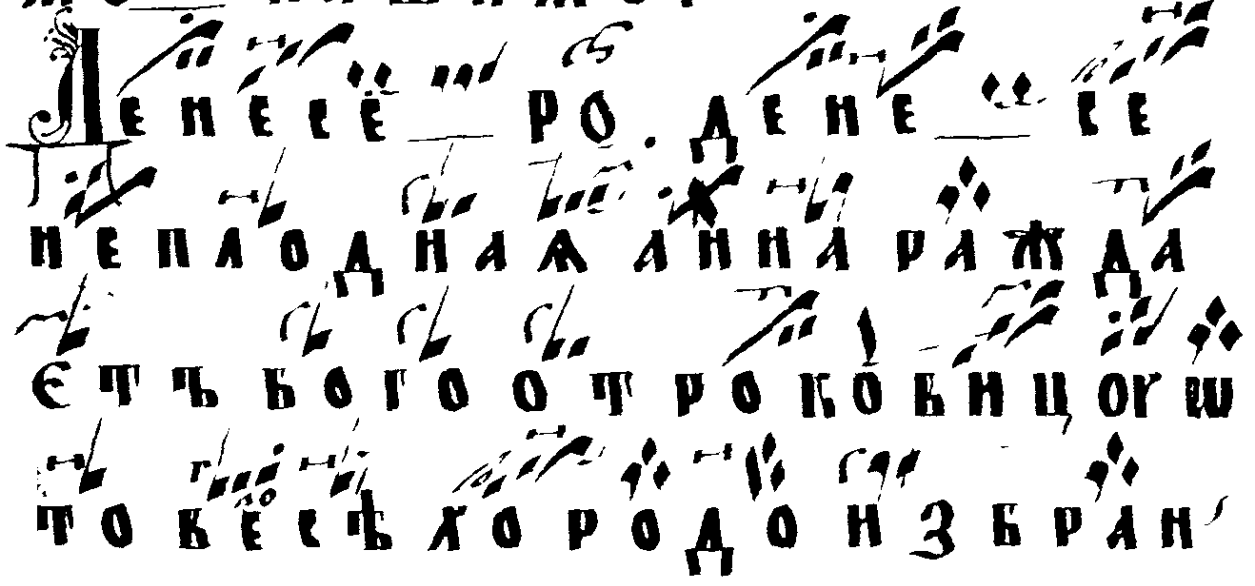 Денесее ро. дене се
неплоднаѧ анна ражда
єтъ богоотроковицоу ѿ
то весѣхо родо избран